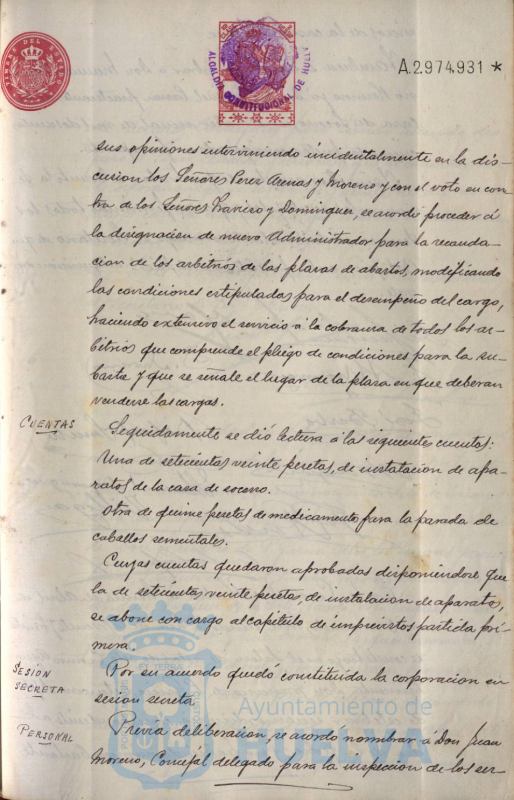 TIMBRE DEL ESTADO
ALCALDÍA CONSTITUCIONAL DE HUELVA
A.2974.931 *
sus opiniones interviniendo incidentalmente en la dis-
cusion los Señores Perez Arenas y Moreno y con el voto en con
tra de los Señores Travieso y Dominguez, se acordó proceder á
la designacion de nuevo Administrador para la recauda-
cion de los arbitrios de las plazas de abastos, modificando
las condiciones estipuladas para el desempeño del cargo,
haciendo extensivo el servicio á la cobranza de todos los ar-
bitrios que comprende el pliego de condiciones para la su-
basta y que se señale el lugar de la plaza en que deberan
venderse las cargas.
CUENTAS
Seguidamente se dió lectura á las siguientes cuentas:
Una de setecientas veinte pesetas, de instalacion de apa-
ratos de la casa de socorro.
Otra de quince pesetas de medicamento para la parada de
caballos sementales.
Cuyas cuentas quedaron aprobadas disponiendose que
la de setecientas veinte pesetas, de instalacion de aparatos,
se abone con cargo al capítulo de imprevistos partida pri-
mera.
SESIÓN
SECRETA
Por su acuerdo quedó constituida la corporacion en
sesion secreta
PERSONAL
Previa deliberacion, se acordó nombrar á Don Juan
Moreno, Concejal delegado para la inspeccion de los ser-
Ayuntamiento de
HUELVA